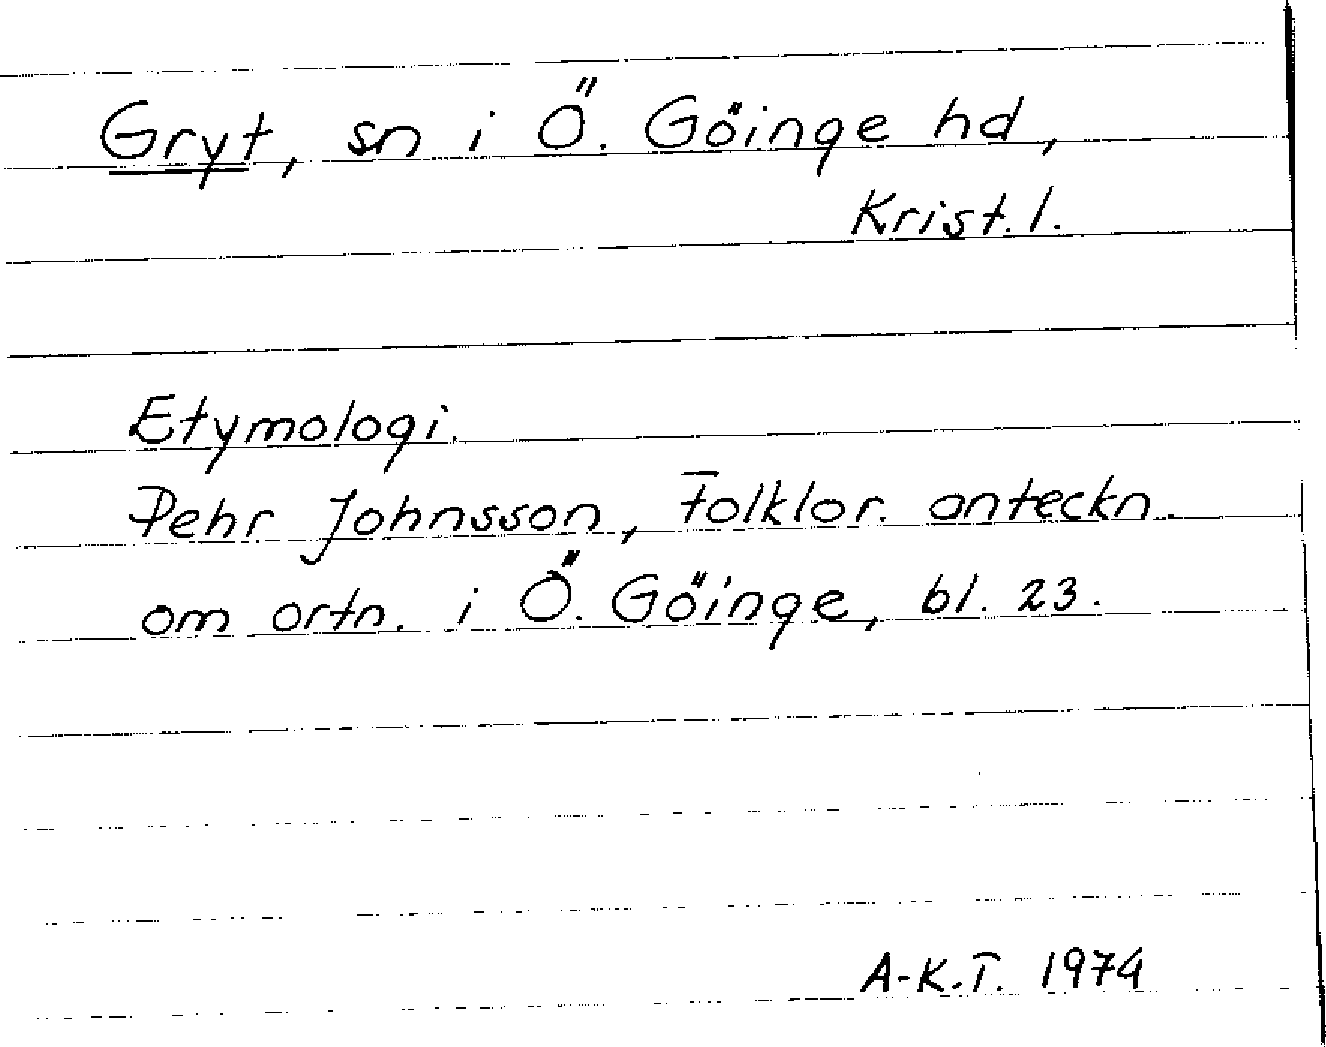 Gryt, sn i Ö. Göinge hd,
Krist. l.
Etymologi.
Pehr Johnsson, Folklor. anteckn.
om ortn. i Ö. Göinge, bl. 23.
A-K.T. 1974